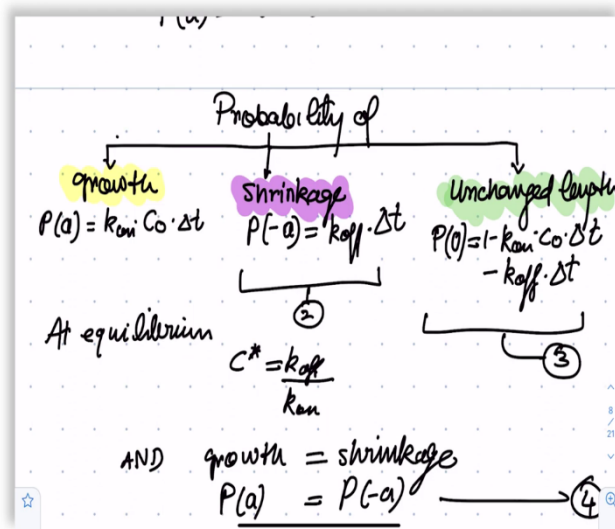 P(a) =
Probability of
growth
P(a) = kon·Co·Δt
shrinkage
P(-a) = koff·Δt
②
Unchanged length
P(0) = 1 - kon·Co·Δt
- koff·Δt
③
At equilibrium
C* = koff
kon
AND growth = shrinkage
P(a) = P(-a) ④
8
/
21